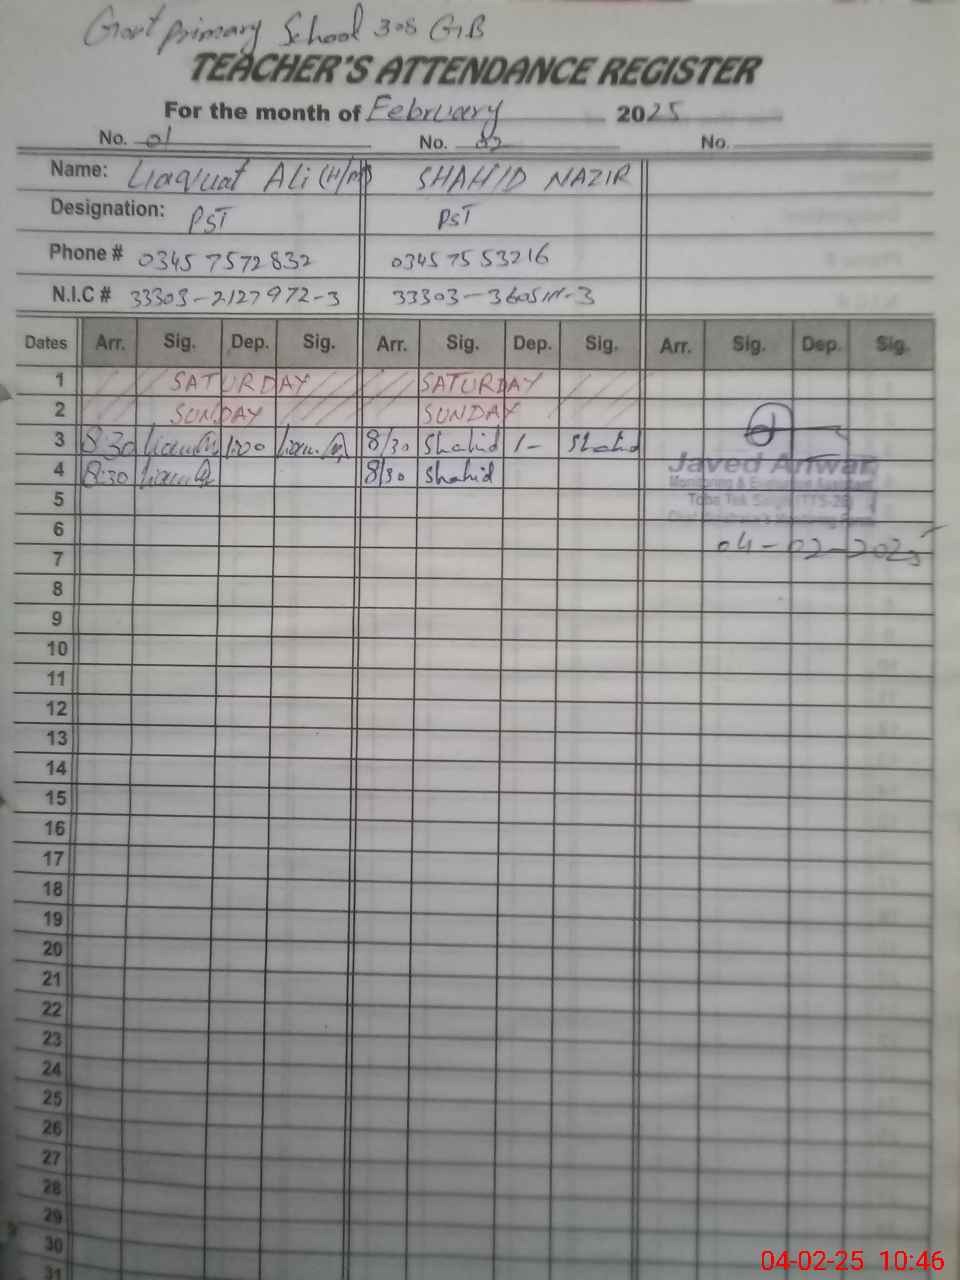 Govt Primary School 308 G.B
TEACHER'S ATTENDANCE REGISTER
For the month of February 2025
No. 01 No. 02 No.
Name: Liaquat Ali (H/M) SHAHID NAZIR
Designation: PST PST
Phone # 0345 7572832 0345 7553216
N.I.C # 33303-2127972-3 33303-
Dates Arr. Sig. Dep. Sig. Arr. Sig. Dep. Sig. Arr. Sig. Dep. Sig.
1 SATURDAY SATURDAY
2 SUNDAY SUNDAY
3 8:30 1:00 8/30 Shahid 1- Shahid
4 8:30 8/30 Shahid
Javed Anwar
Monitoring & Evaluation Assistant
5
Toba Tek Singh (TTS-26)
6
04-02-2025
7
8
9
10
11
12
13
14
15
16
17
18
19
20
21
22
23
24
25
26
27
28
29
30
31
04-02-25 10:46